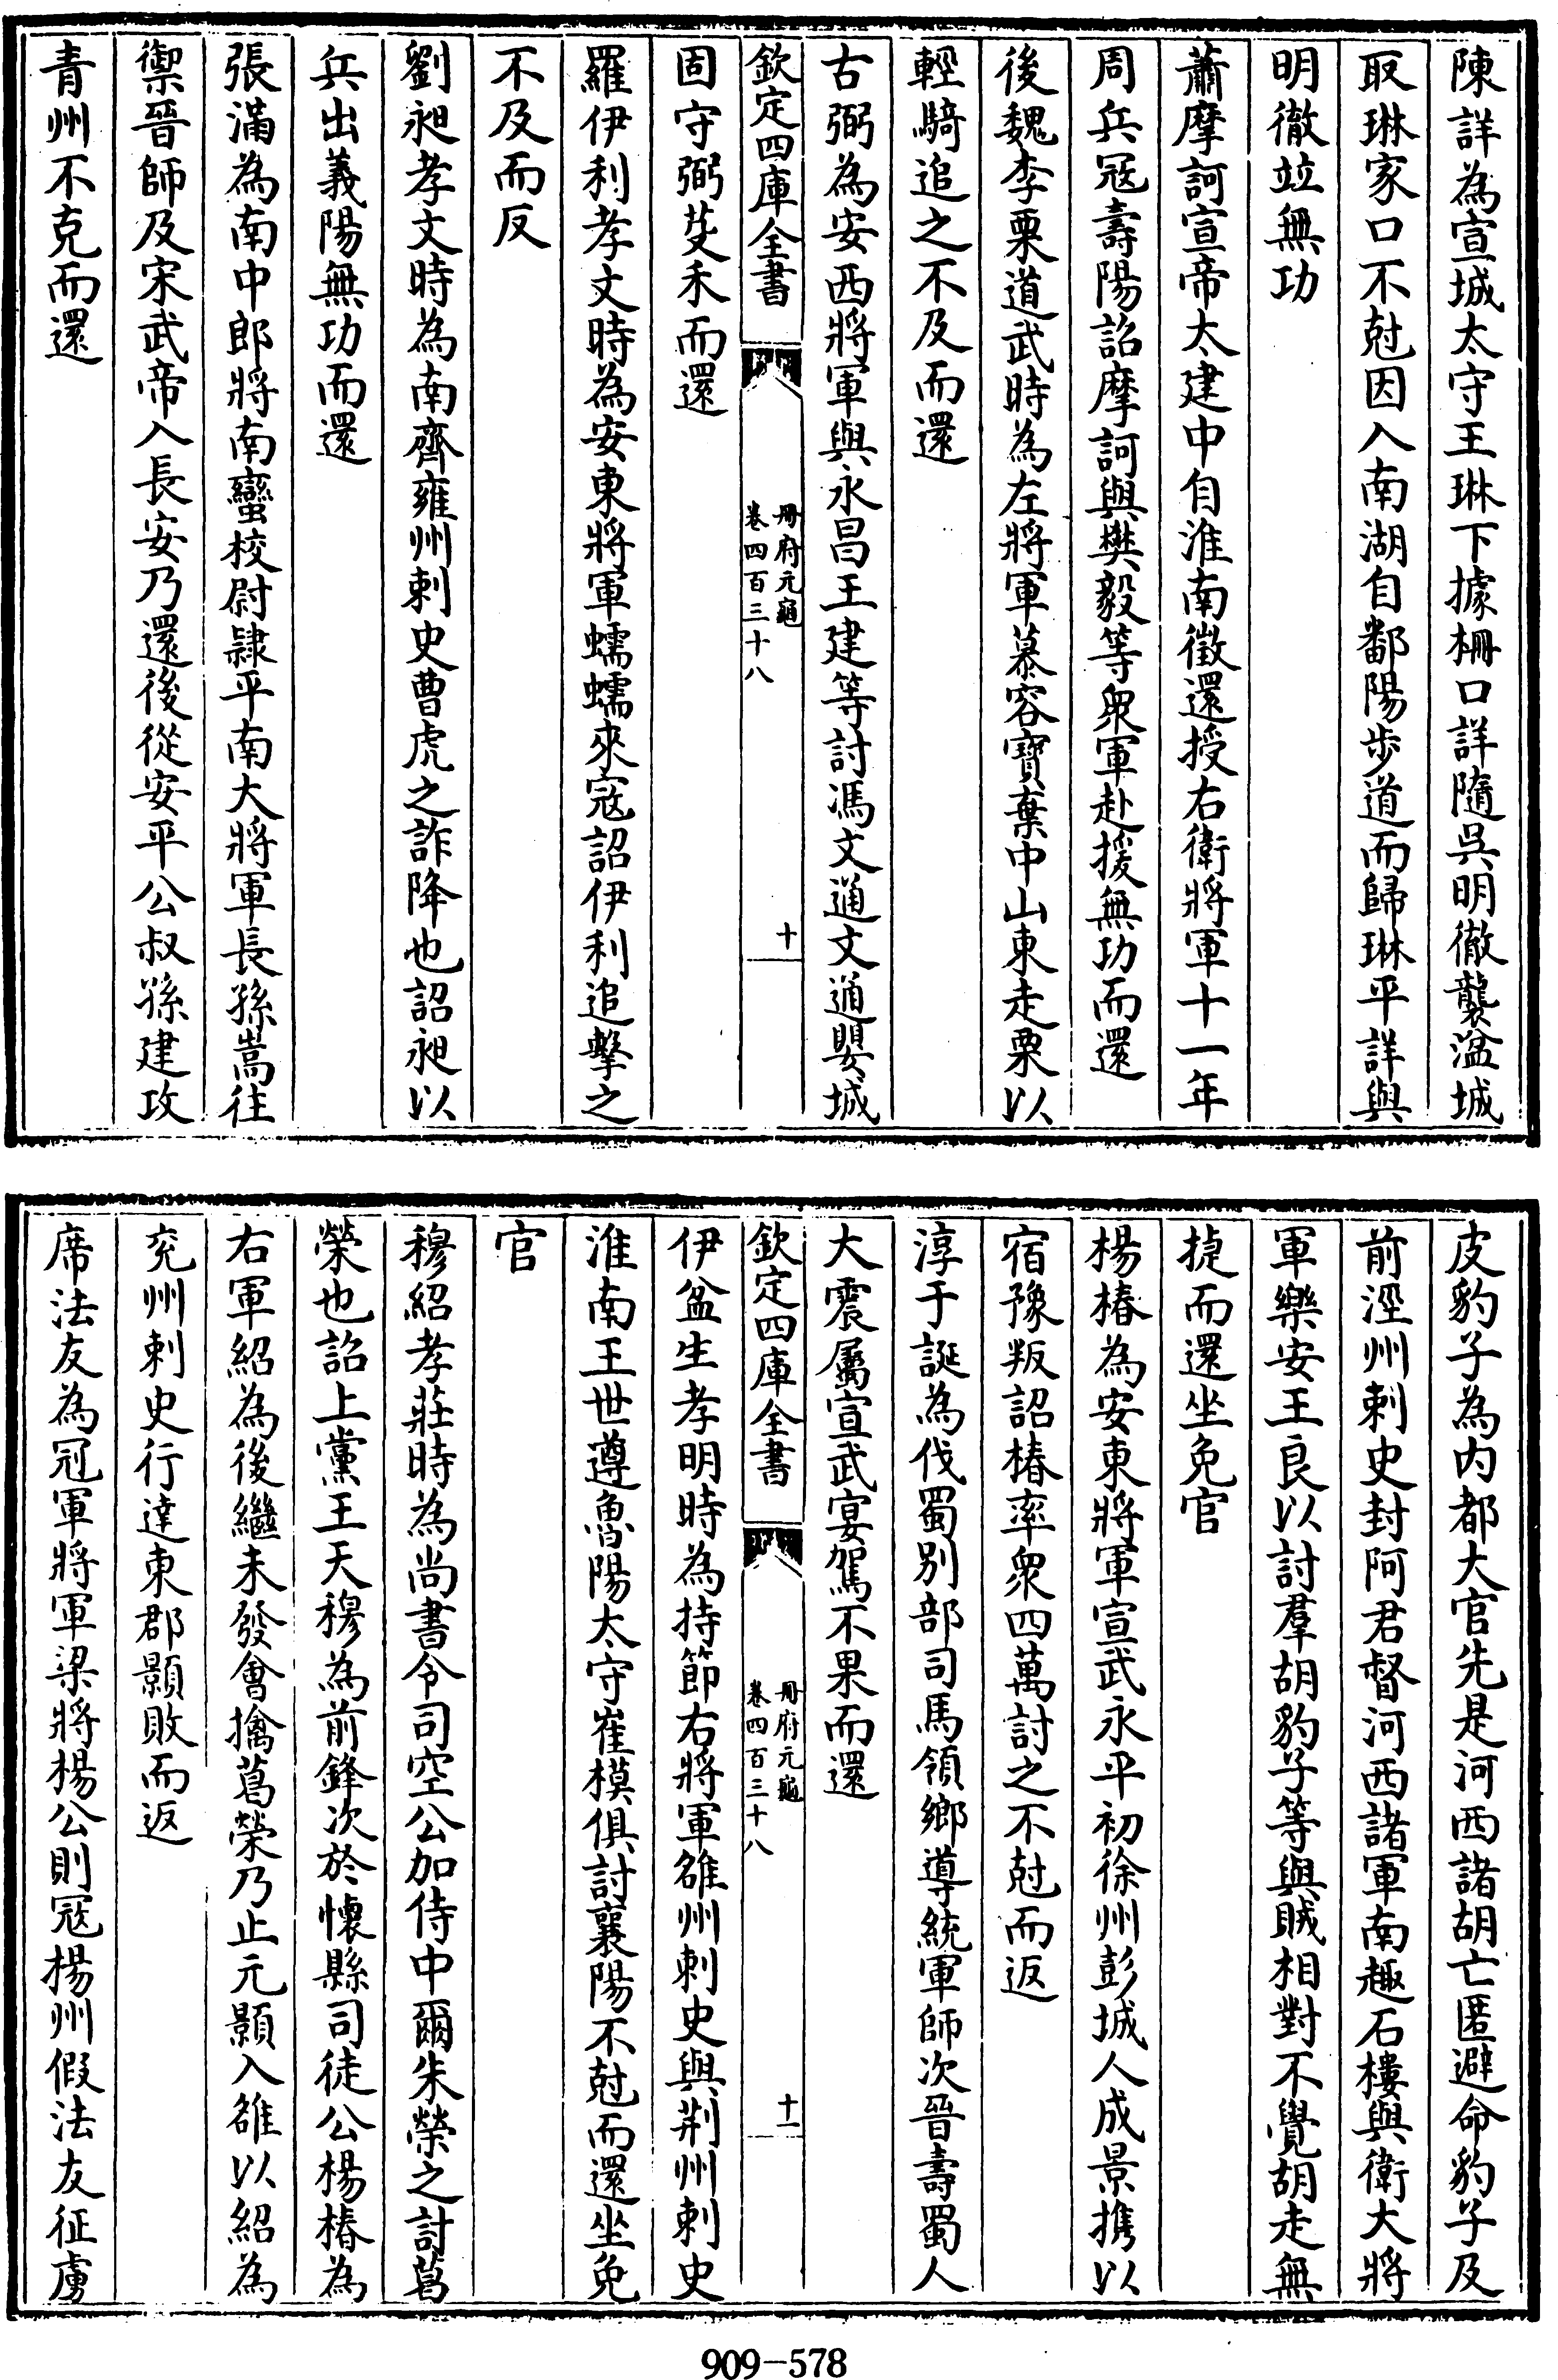 陳詳為宣城太守王琳下據柵口詳隨吳明徹襲湓城
取琳家口不尅因入南湖自鄱陽步道而歸琳平詳與
明徹竝無功
蕭摩訶宣帝太建中自淮南徵還授右衛將軍十一年
周兵冦壽陽詔摩訶與樊毅等衆軍赴援無功而還
後魏李栗道武時為左將軍慕容寶棄中山東走栗以
輕騎追之不及而還
古弼為安西將軍與永昌王建等討馮文通文通嬰城
欽定四庫全書
冊府元龜
卷四百三十八
十
固守弼芟禾而還
羅伊利孝文時為安東將軍蠕蠕來寇詔伊利追擊之
不及而反
劉昶孝文時為南齊雍州刺史曹虎之詐降也詔昶以
兵出義陽無功而還
張滿為南中郎將南蠻校尉隷平南大將軍長孫嵩往
禦晉師及宋武帝入長安乃還後從安平公叔孫建攻
青州不克而還
皮豹子為内都大官先是河西諸胡亡匿避命豹子及
前涇州刺史封阿君督河西諸軍南趣石樓與衛大將
軍樂安王良以討羣胡豹子等與賊相對不覺胡走無
捷而還坐免官
楊椿為安東將軍宣武永平初徐州彭城人成景携以
宿豫叛詔椿率衆四萬討之不尅而返
淳于誕為伐蜀别部司馬領鄉導統軍師次晉壽蜀人
大震屬宣武宴駕不果而還
欽定四庫全書
冊府元龜
卷四百三十八
十一
伊盆生孝明時為持節右將軍雒州刺史與荆州刺史
淮南王世遵魯陽太守崔模俱討襄陽不尅而還坐免
官
穆紹孝莊時為尚書令司空公加侍中爾朱榮之討葛
榮也詔上黨王天穆為前鋒次於懷縣司徒公楊椿為
右軍紹為後繼未發會擒葛榮乃止元顥入雒以紹為
兖州刺史行達東郡顥敗而返
席法友為冠軍將軍梁將楊公則冦楊州假法友征虜
909-578